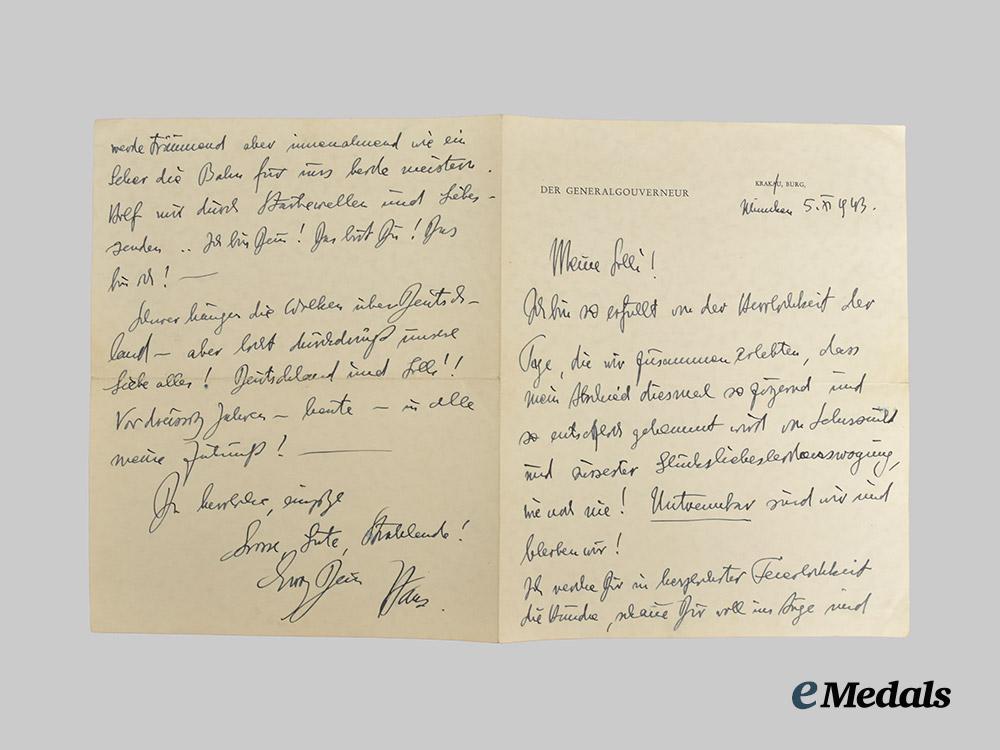 DER GENERALGOUVERNEUR
KRAKAU, BURG,
München 5. XI 1943.
Meine Lilli!
Ich bin so erfüllt von der Herrlichkeit der
Tage, die wir zusammen erlebten, dass
mein Abschied diesmal so zögernd und
so gehemmt wird von Sehnsucht
und süssester
wie noch nie! Untrennbar sind wir und
bleiben wir!
Ich Dir in Feierlichkeit
die Hände, schaue Dir voll ins Auge und
werde träumend aber wie ein
Seher die Bahn für uns beide meistern.
Hilf mir durch Stärkewellen und Liebes-
senden .. Ich bin Dein! Das bist Du! Das
bin ich! —
Schwer hängen die Wolken über Deutsch-
land — aber licht durchdringt unsere
Liebe alles! Deutschland und Lilli!!
Vor dreissig Jahren — heute — in alle
meine Zukunft! —
Du herrliche, einzige
Grosse, Gute, Strahlende!
Ewig Dein Hans.
eMedals